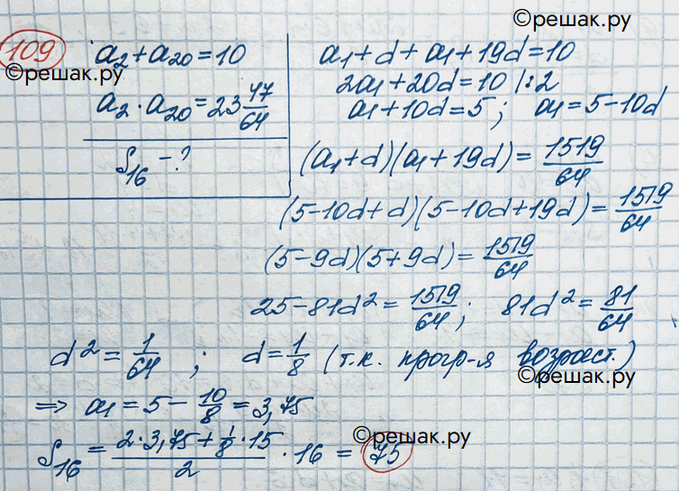 ©решак.ру
109 a₂+a₂₀=10
©решак.ру
a₂·a₂₀=23 47/64
S₁₆ - ?
a₁+d+a₁+19d=10
2a₁+20d=10 |:2
a₁+10d=5; a₁=5-10d
(a₁+d)(a₁+19d)= 1519/64
(5-10d+d)(5-10d+19d)= 1519/64
(5-9d)(5+9d)= 1519/64
25-81d²= 1519/64; 81d²= 81/64
d²= 1/64; d= 1/8 (т.к. прогр-я возраст.)
©решак.ру
⇒ a₁=5- 10/8 =3,75
©решак.ру
S₁₆= (2·3,75+ 1/8 ·15)/2 ·16 = 75